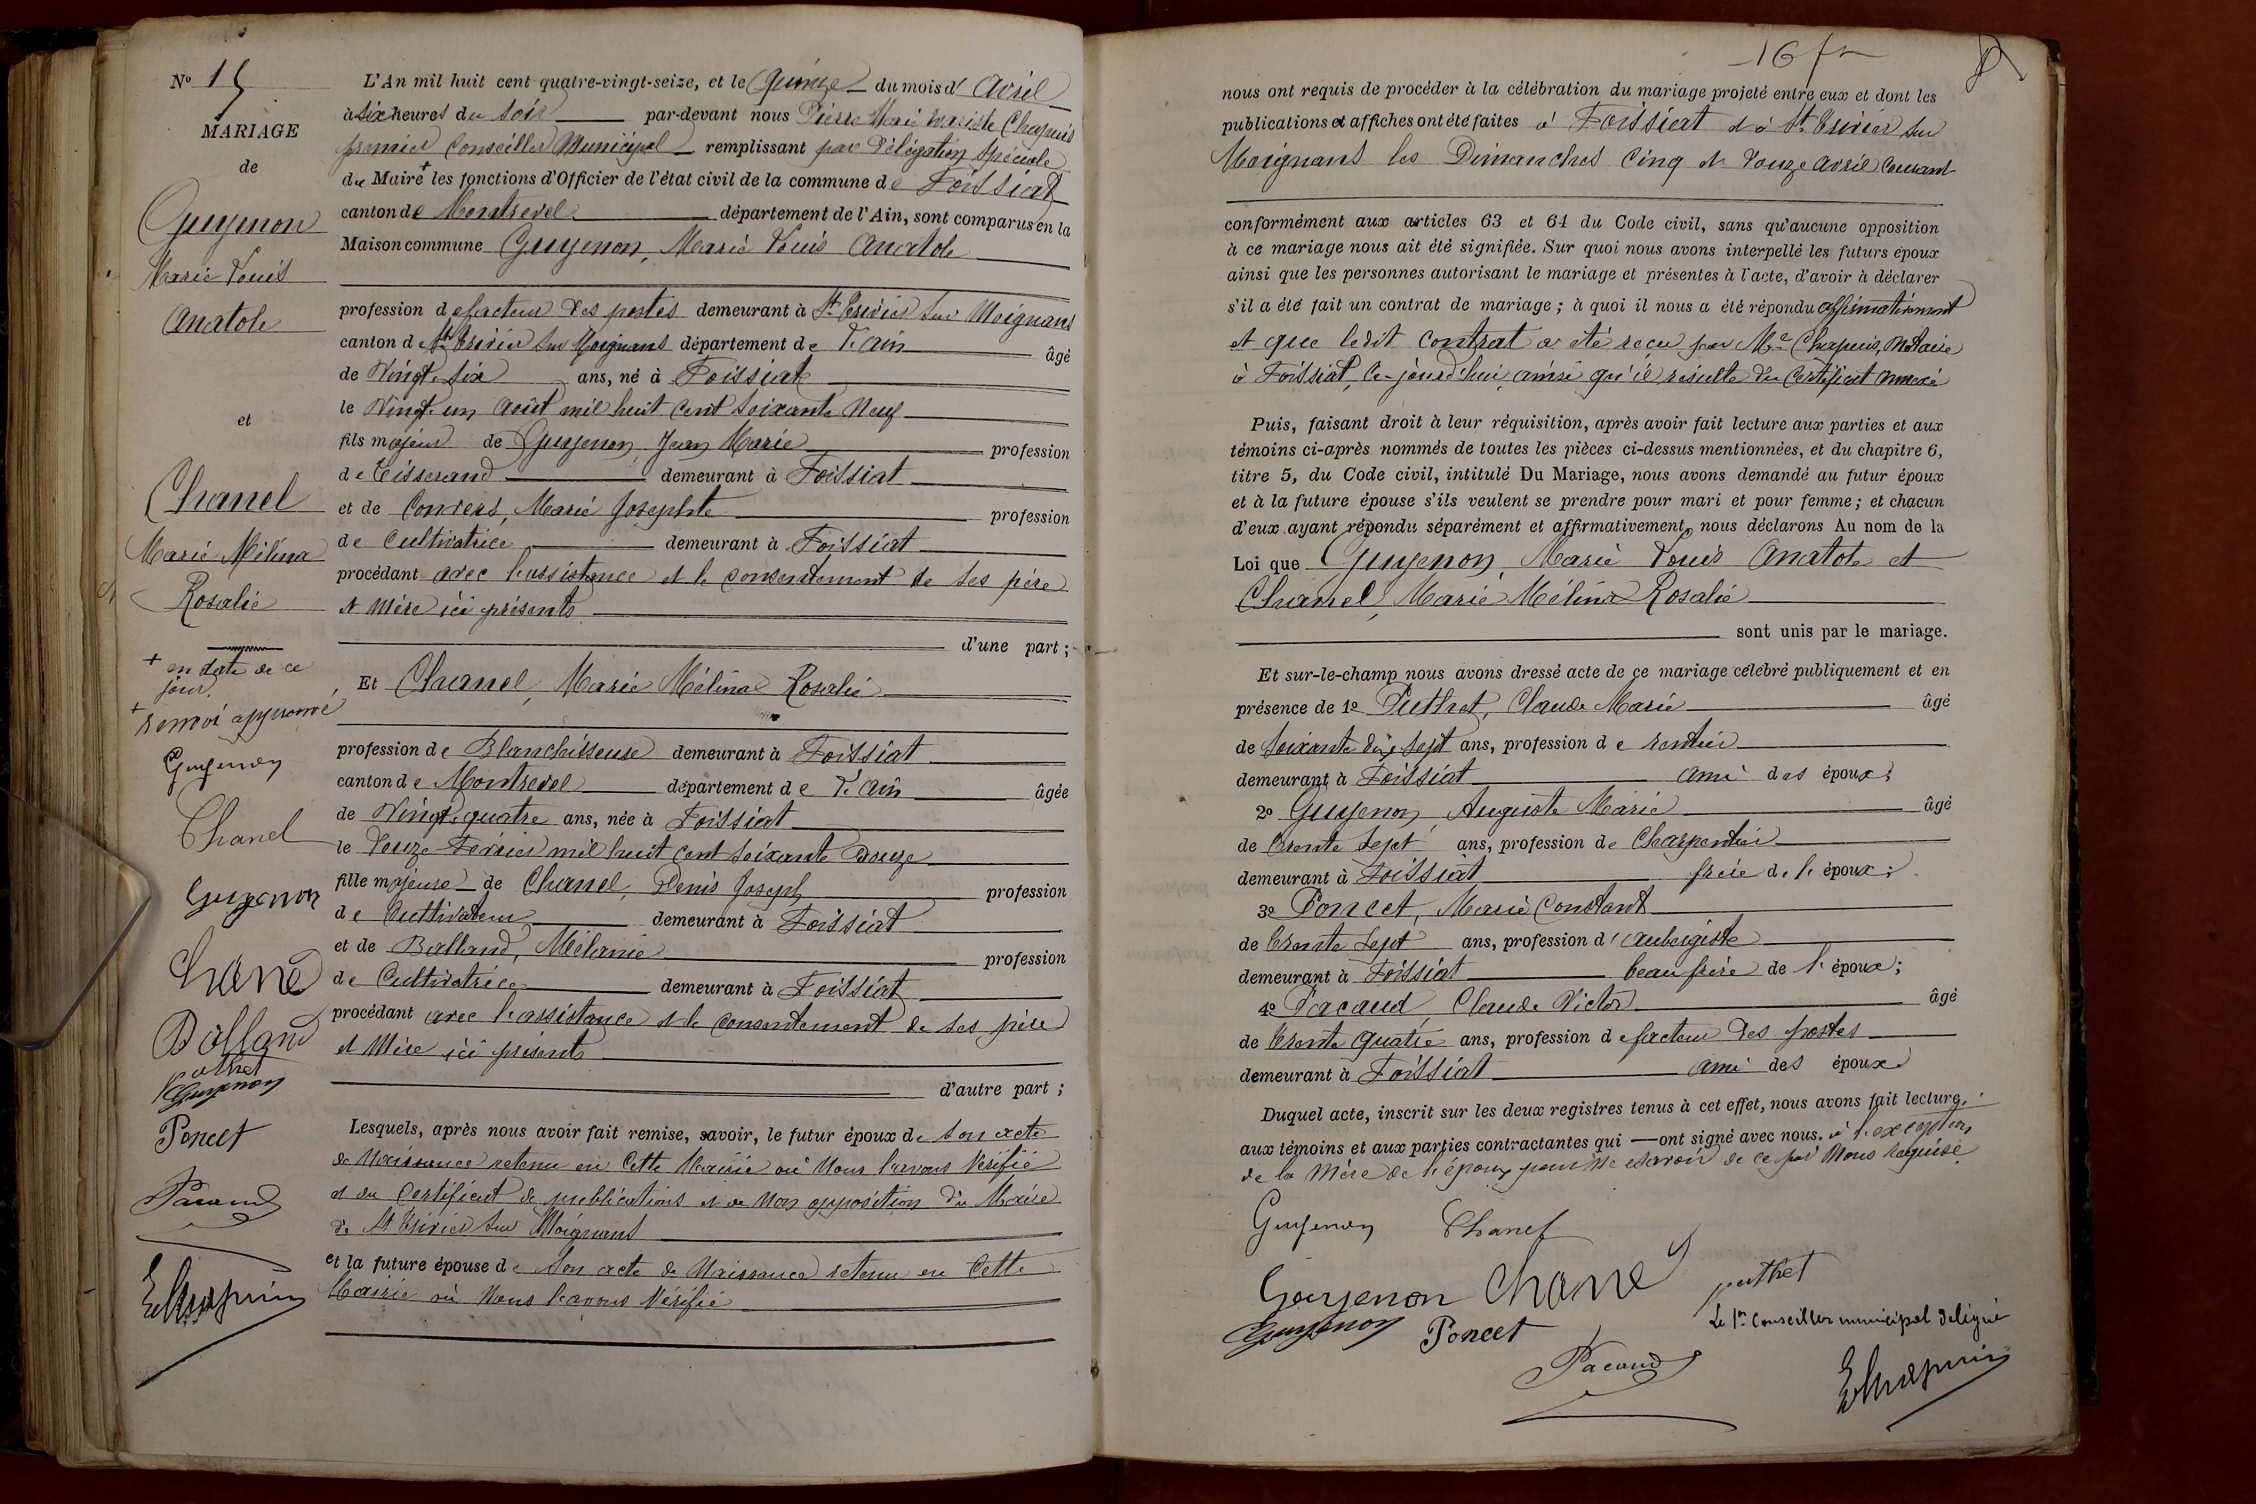 N° 15
MARIAGE
de
Guyenon
Marie Louis
Anatole
et
Chanel
Marie Mélina
Rosalie
+ en date de ce
jour.
+ renvoi approuvé
Guyenon
Chanel
Guyenon
Chanel
Balland
puthet
Guyenon
Poncet
Pacaud
EChapuis
L'An mil huit cent quatre-vingt-seize, et le Quinze du mois d' Avril
à six heures du soir par-devant nous Pierre Marie Chapuis
premier Conseiller Municipal remplissant par Délégation spéciale
du Maire + les fonctions d'Officier de l'état civil de la commune de Foissiat
canton de Montrevel département de l'Ain, sont comparus en la
Maison commune Guyenon, Marie Louis Anatole
profession de facteur des postes demeurant à St Trivier sur Moignans
canton de St Trivier sur Moignans département de L'Ain âgé
de Vingt-six ans, né à Foissiat
le Vingt-un Août mil huit cent soixante Neuf
fils majeur de Guyenon Jean Marie profession
de Tisserand demeurant à Foissiat
et de Convers, Marie Josephte profession
de Cultivatrice demeurant à Foissiat
procédant avec l'assistance et le consentement de ses père
et Mère ici présents
d'une part ;
Et Chanel, Marie Mélina Rosalie
profession de Blanchisseuse demeurant à Foissiat
canton de Montrevel département de L'Ain âgée
de Vingt-quatre ans, née à Foissiat
le Douze Février mil huit cent soixante Douze
fille majeure de Chanel, Denis Joseph profession
de Cultivateur demeurant à Foissiat
et de Balland, Mélanie profession
de Cultivatrice demeurant à Foissiat
procédant avec l'assistance et le consentement de ses père
et Mère ici présents
d'autre part ;
Lesquels, après nous avoir fait remise, savoir, le futur époux de son acte
de Naissance retenu en Cette Mairie où Nous l'avons Vérifié
et du Certificat de publications et de Non opposition du Maire
de St Trivier sur Moignans
et la future épouse de son acte de Naissance retenu en Cette
Mairie où Nous l'avons Vérifié
16
nous ont requis de procéder à la célébration du mariage projeté entre eux et dont les
publications et affiches ont été faites à Foissiat et à St Trivier sur
Moignans les Dimanches Cinq et Douze Avril Courant
conformément aux articles 63 et 64 du Code civil, sans qu'aucune opposition
à ce mariage nous ait été signifiée. Sur quoi nous avons interpellé les futurs époux
ainsi que les personnes autorisant le mariage et présentes à l'acte, d'avoir à déclarer
s'il a été fait un contrat de mariage ; à quoi il nous a été répondu affirmativement
et que ledit contrat a été reçu par Me Chapuis, Notaire
à Foissiat, ce-jourd'hui, ainsi qu'il résulte du Certificat annexé
Puis, faisant droit à leur réquisition, après avoir fait lecture aux parties et aux
témoins ci-après nommés de toutes les pièces ci-dessus mentionnées, et du chapitre 6,
titre 5, du Code civil, intitulé Du Mariage, nous avons demandé au futur époux
et à la future épouse s'ils veulent se prendre pour mari et pour femme ; et chacun
d'eux ayant répondu séparément et affirmativement, nous déclarons Au nom de la
Loi que Guyenon, Marie Louis Anatole et
Chanel, Marie Mélina Rosalie
sont unis par le mariage.
Et sur-le-champ nous avons dressé acte de ce mariage célébré publiquement et en
présence de 1° Puthet, Claude Marie âgé
de soixante dix sept ans, profession de rentier
demeurant à Foissiat ami des époux ;
2° Guyenon Auguste Marie âgé
de Trente Sept ans, profession de Charpentier
demeurant à Foissiat frère de l'époux ;
3° Poncet, Marie Constant
de Trente Sept ans, profession d'aubergiste
demeurant à Foissiat beau frère de l'époux ;
4° Pacaud, Claude Victor âgé
de Trente quatre ans, profession de facteur des postes
demeurant à Foissiat ami des époux
Duquel acte, inscrit sur les deux registres tenus à cet effet, nous avons fait lecture
aux témoins et aux parties contractantes qui ont signé avec nous. à l'exception
de la Mère de l'époux pour ne savoir de ce par Nous requise
Guyenon Chanel
Guyenon Chanel puthet
Guyenon Poncet Le 1er Conseiller municipal délégué
Pacaud
EChapuis